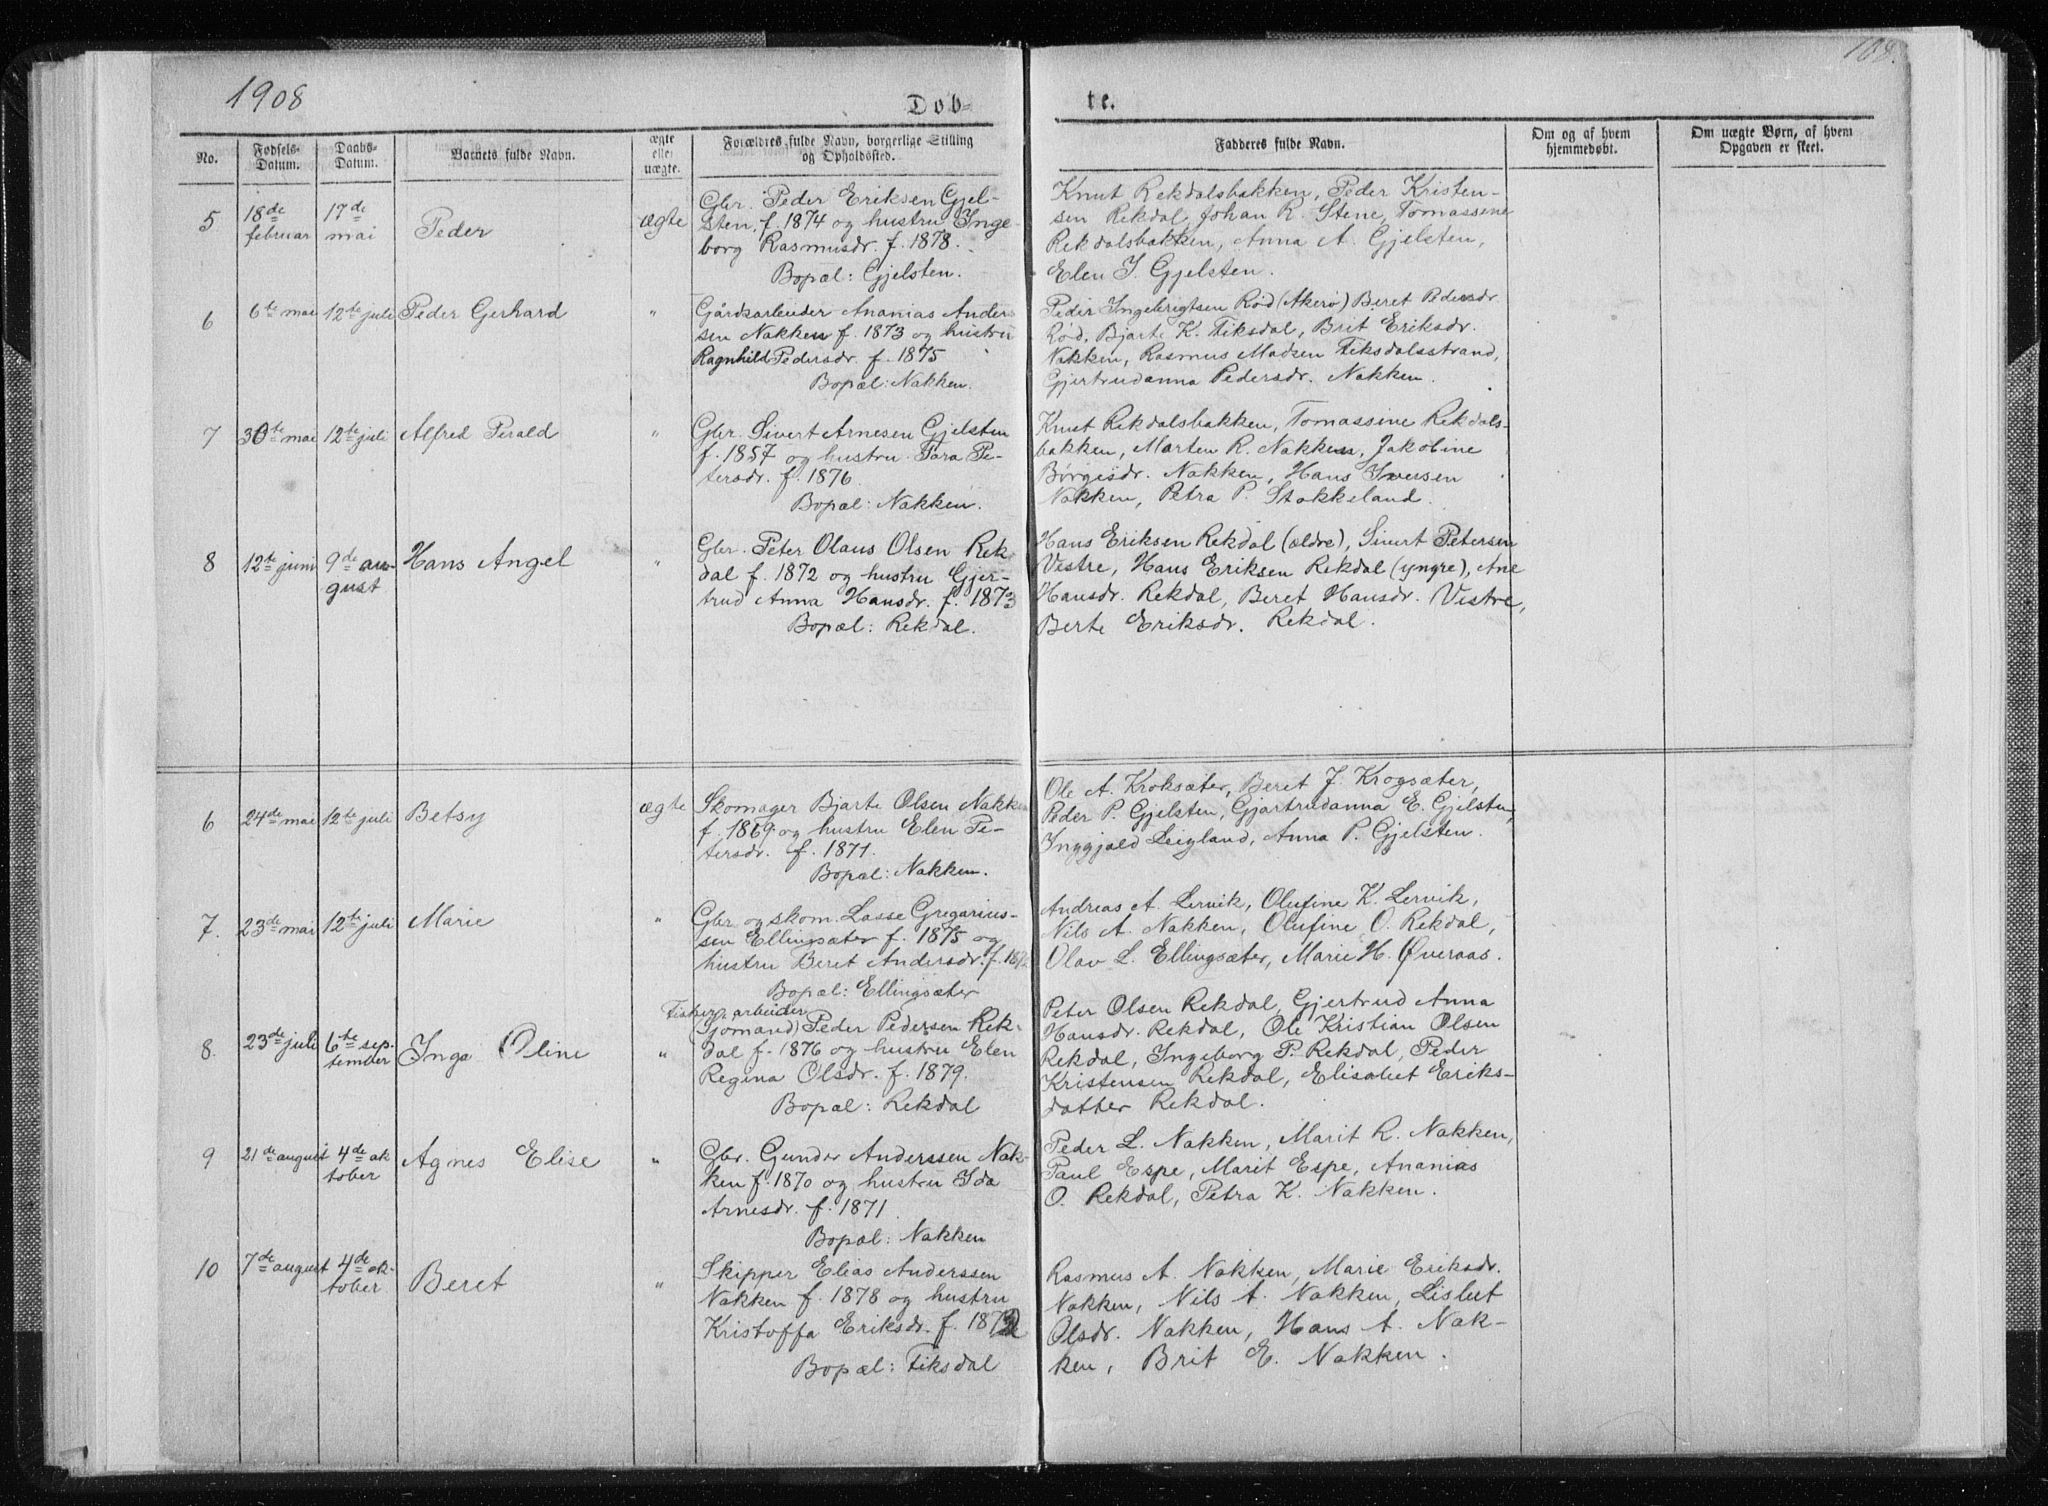 1908
108.
Døb-
te.
No.
Fødsels-
Datum.
Daabs-
Datum.
Barnets fulde Navn.
ægte
eller
uægte.
Forældres fulde Navn, borgerlige Stilling
og Opholdssted.
Fadderes fulde Navn.
Om og af hvem
hjemmedøbt.
Om uægte Børn, af hvem
Opgaven er skeet.
5
18de
februar
17de
mai
Peder
ægte
Gbr. Peder Eriksen Gjel-
sten, f. 1874 og hustru Inge-
borg Rasmusdr. f. 1878.
Bopæl: Gjelsten.
Knut Rekdalsbakken, Peder Kristen-
sen Rekdal, Johan R. Stene, Tomassene
Rekdalsbakken, Anna A. Gjelsten,
Elen J. Gjelsten.
6
6te mai
12te juli
Peder Gerhard
"
Gårdsarbeider Ananias Ander-
sen Nakken f. 1873 og hustru
Ragnhild Pedersdr. f. 1875
Bopæl: Nakken.
Peder Ingebrigtsen Rød (Akerø) Beret Pedersdr.
Rød, Bjarte K. Fiksdal, Brit Eriksdr.
Nakken, Rasmus Madsen Fiksdalsstrand,
Gjertrudanna Pedersdr. Nakken.
7
30te mai
12te juli
Alfred Perald
"
Gbr. Sivert Arnesen Gjelsten
f. 1857 og hustru Sara Pe-
tersdr. f. 1876.
Bopæl: Nakken.
Knut Rekdalsbakken, Tomassine Rekdals-
bakken, Marten R. Nakken, Jakobine
Børgisdr. Nakken, Hans Iversen
Nakken, Petra P. Stokkeland.
8
12te juni
9de au-
gust
Hans Angel
"
Gbr. Peter Olaus Olsen Rek
dal f. 1872 og hustru Gjer-
trud Anna Hansdr. f. 1873
Bopæl: Rekdal.
Hans Eriksen Rekdal (ældre), Sivert Petersen
Vestre, Hans Eriksen Rekdal (yngre), Ane
Hansdr. Rekdal, Beret Hansdr. Vestre,
Berte Eriksdr. Rekdal.
6
24de mai
12te juli
Betsy
ægte
Skomager Bjarte Olsen Nakken
f. 1869 og hustru Elen Pe-
tersdr. f. 1871.
Bopæl: Nakken.
Ole A. Kroksæter, Beret J. Krogsæter,
Peder P. Gjelsten, Gjartrudanna E. Gjelsten,
Inggjald Leigland, Anna P. Gjelsten.
7.
23de mai
12te juli
Marie
"
Gbr og skom. Lasse Gregarius-
sen Ellingsæter f. 1875 og
hustru Beret Andersdr. f. 187
Bopæl: Ellingsæter
Andreas A. Lervik, Olufine K. Lervik,
Nils A. Nakken, Olufine O. Rekdal,
Olav L. Ellingsæter, Marie H. Øveraas.
8.
23de juli
6te sep-
tember
Inga Oline
"
Fisker, arbeider
(Jomand) Peder Pedersen Rek-
dal f. 1876 og hustru Elen
Regina Olsdr. f. 1879.
Bopæl: Rekdal
Peter Olsen Rekdal, Gjertrud Anna
Hansdr. Rekdal, Ole Kristian Olsen
Rekdal, Ingeborg P. Rekdal, Peder
Kristensen Rekdal, Elisabet Eriks-
datter Rekdal.
9
21de august
4de ok
tober
Agnes Elise
"
Gbr. Gunder Anderssen Nak-
ken f. 1870 og hustru Ida
Arnesdr. f. 1871.
Bopæl: Nakken
Peder L. Nakken, Marit R. Nakken,
Paul Espe, Marit Espe, Ananias
O. Rekdal, Petra K. Nakken.
10
7de august
4de ok-
tober
Beret
"
Skipper Elias Anderssen
Nakken f. 1878 og hustru
Kristoffa Eriksdr. f. 1872
Bopæl: Fiksdal
Rasmus A. Nakken, Marie Eriksdr.
Nakken, Nils A. Nakken, Lisbet
Olsdr. Nakken, Hans A. Nak-
ken, Brit E. Nakken.